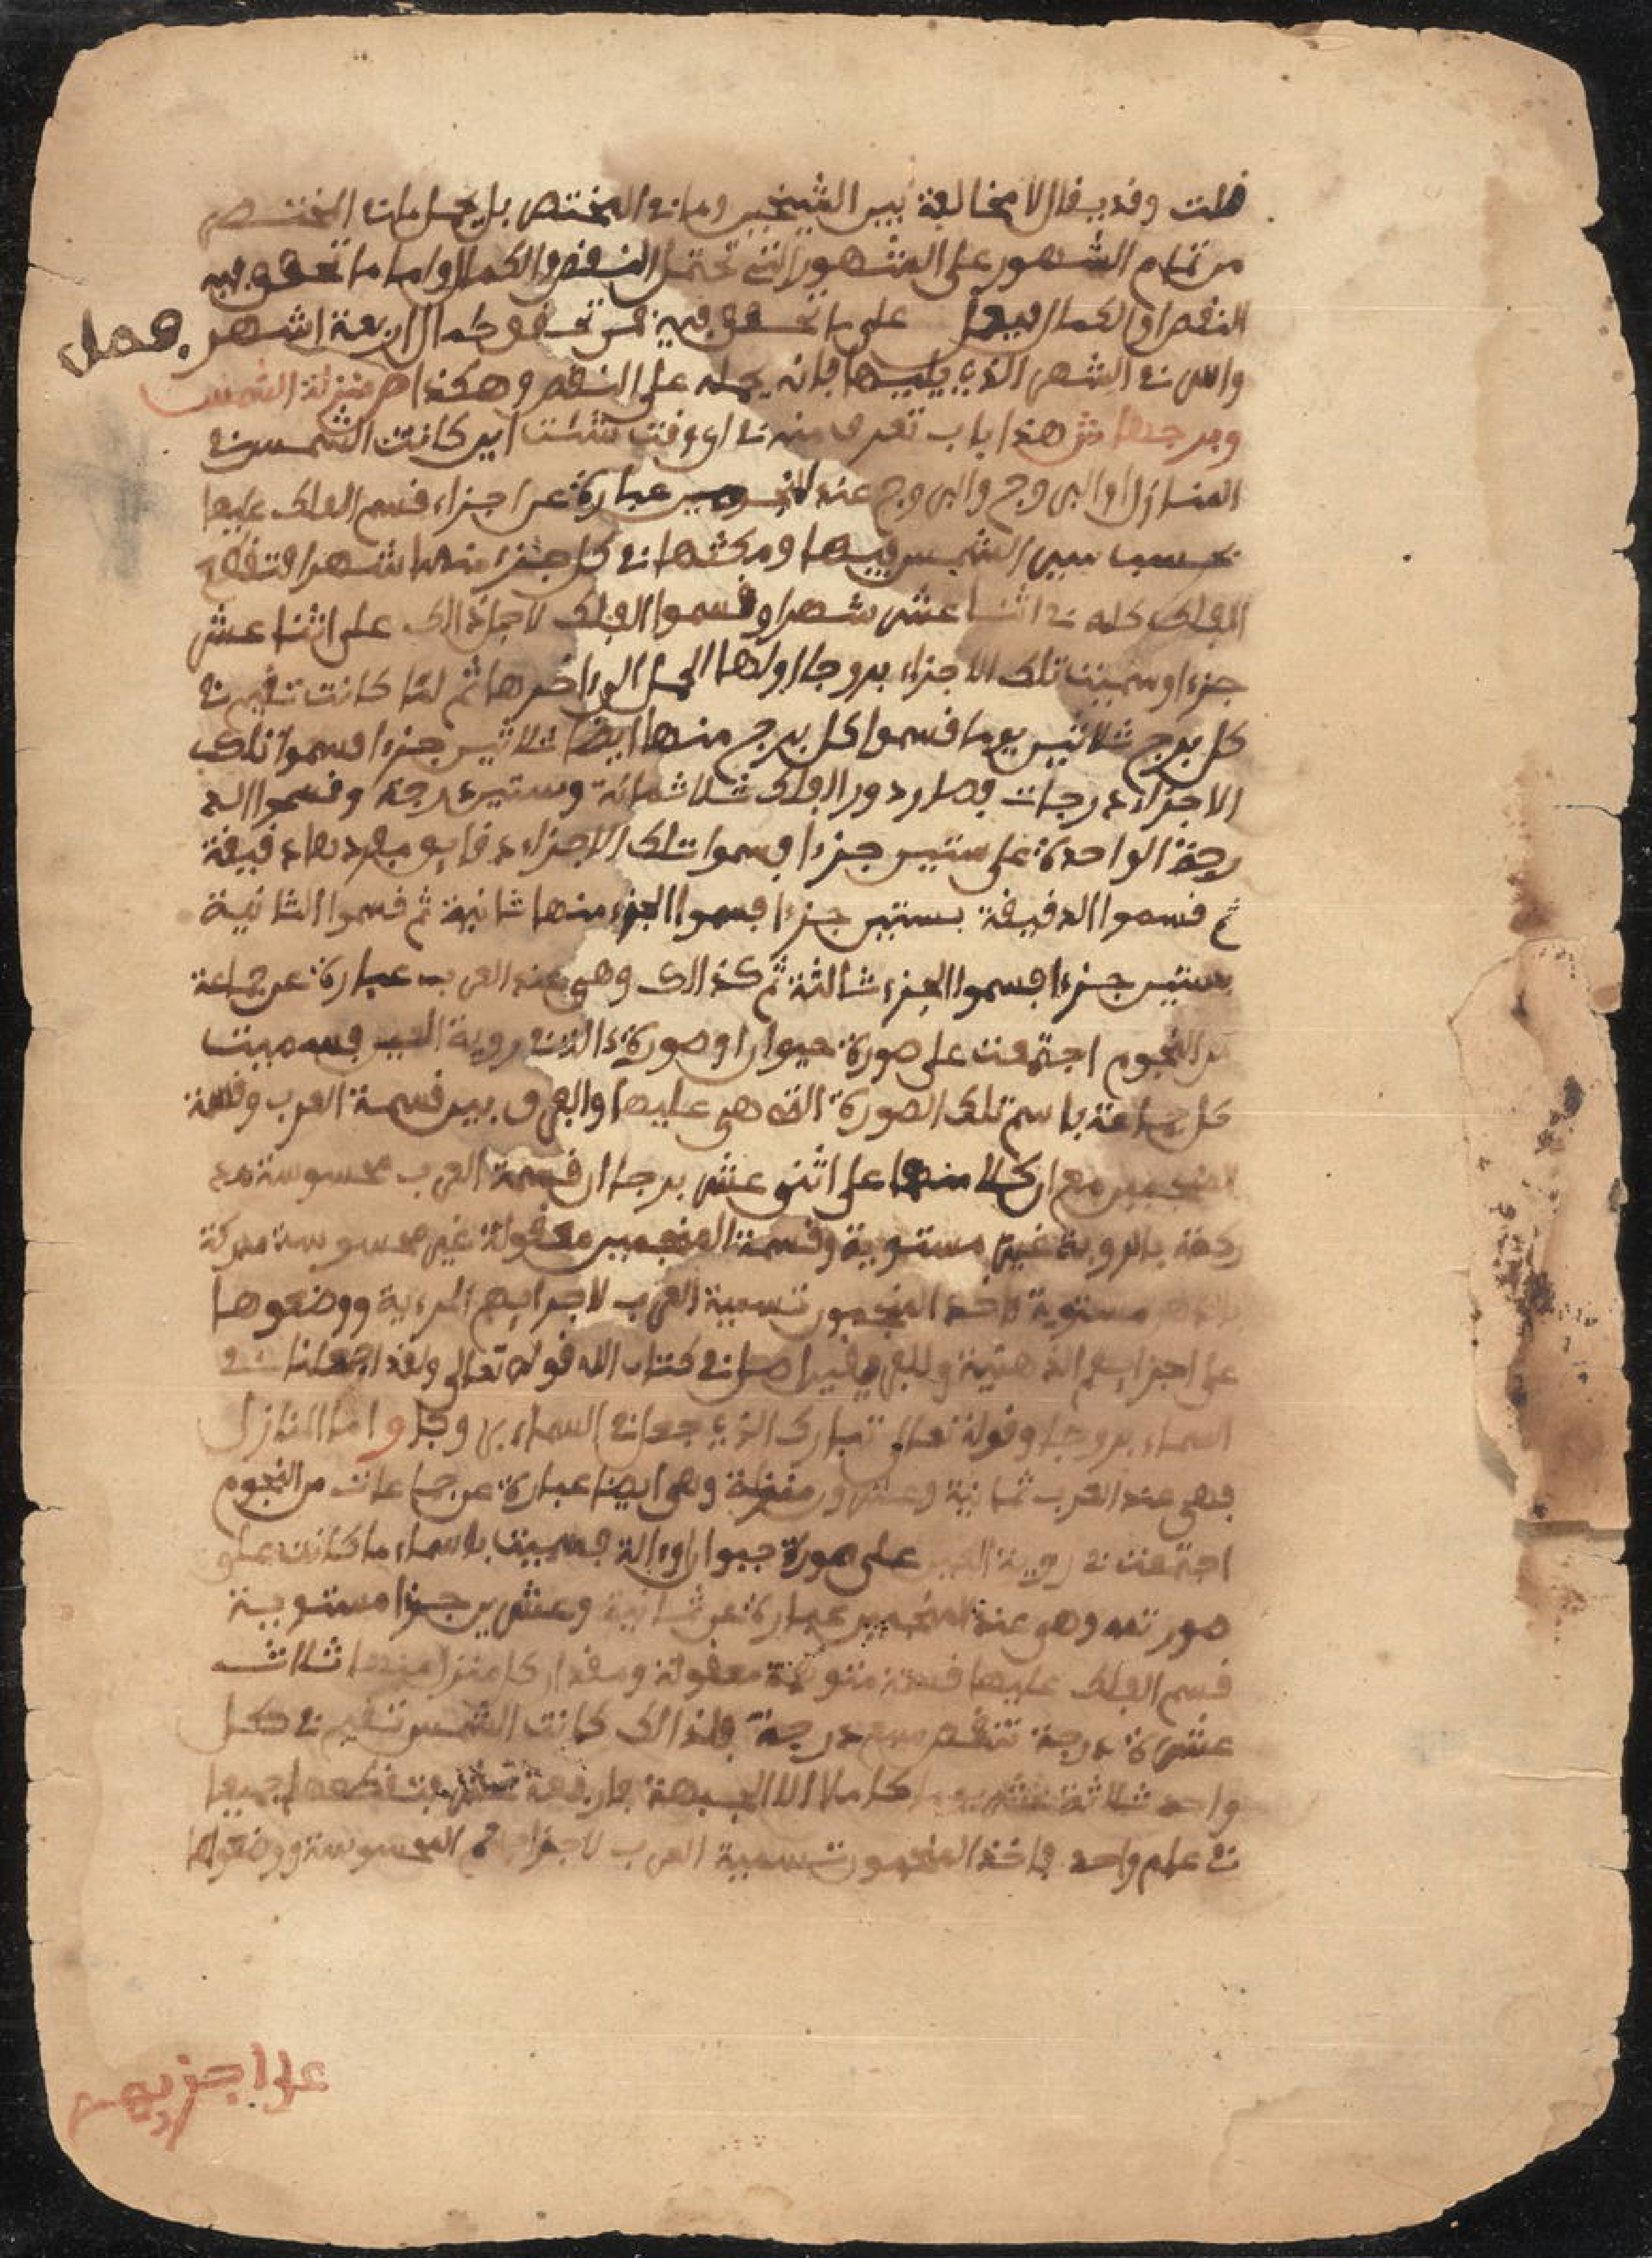 قلت وقد يقال لا مخالفة بين الشيخين وما في المختص بل يحمل المختصر
من تمام الشهور على الشهور التي تحتمل النقص والكمال واما ما تحقق فيه
النقص او الكمال فيها على ما تحقق فيه فمن تحقق كمال اربعة اشهر
فعمل
في الشهر الذي يليها فإنه يحمله على النقص وهكذا اهـ منزلة الشمس
وبرجها ش هذا باب تعرف منه في اي وقت شئت اين كانت الشمس في
المنازل او البروج والبروج عند المنجمين عبارة عن اجزاء قسم الفلك عليها
بحسب سير الشمس فيها ومكثها في كل جزء منها شهرا فتقطع
الفلك كله في اثنا عشر شهرا وقسموا الفلك لاجل ذالك على اثنا عشر
جزءا وسميت تلك الاجزاء بروجا اولها الحمل الى اخرها ثم لما كانت تقيم في
كل برج ثلاثين يوما قسموا كل برج منها ايضا ثلاثين جزءا فسموا تلك
الاجزاء درجات فصار دور الفلك ثلاثمائة وستين درجة وقسموا الد
رجة الواحدة على ستين جزءا فسموا تلك الاجزاء دقايق مفردها دقيقة
ثم قسموا الدقيقة بستين جزءا فسموا الجزء منها ثانية ثم قسموا الثانية
بستين جزءا فسموا الجزء ثالثة ثم كذالك وهي عند العرب عبارة عن جماعة
من النجوم اجتمعت على صورة حيوان او صورة ءالة في روية العين فسميت
كل جماعة باسم تلك الصورة التي هي عليها والفرق بين قسمة العرب وقسمة
المنجمين مع ان كلا منهما على اثني عشر برجا ان قسمة العرب محسوسة مد
ركة بالروية غير مستوية وقسمة المنجمين معقولة غير محسوسة مدركة
مستوية فاخذ المنجمون تسمية العرب لاجزايهم المرءية ووضعوها
على اجزايهم الذهنية وللفريقين اصل في كتاب الله قوله تعالى ولقد جعلنا في
السماء بروجا وقوله تعالى تبارك الذي جعل في السماء بروجا و اما المنازل
فهي عند العرب ثمانية وعشرون منزلة وهي ايضا عبارة عن جماعات من النجوم
اجتمعت في روية العين على صورة حيوان او ءالة فسميت باسماء ما كانت على
صورته وهي عند المنجمين عبارة عن ثمانية وعشرين جزءا مستوية
قسم الفلك عليها قسمة متوهمة معقولة ومقدار كل منزل منها ثلاث
عشرة درجة تنقص سبع درجة فلذالك كانت الشمس تقيم في كل
واحد ثلاثة عشر يوما كاملا الا الجبهة فاربعة عشر فتقطعها جميعا
في عام واحد فاخذ المنجمون تسمية العرب لاجزايهم المحسوسة ووضعوها
على اجزايهم